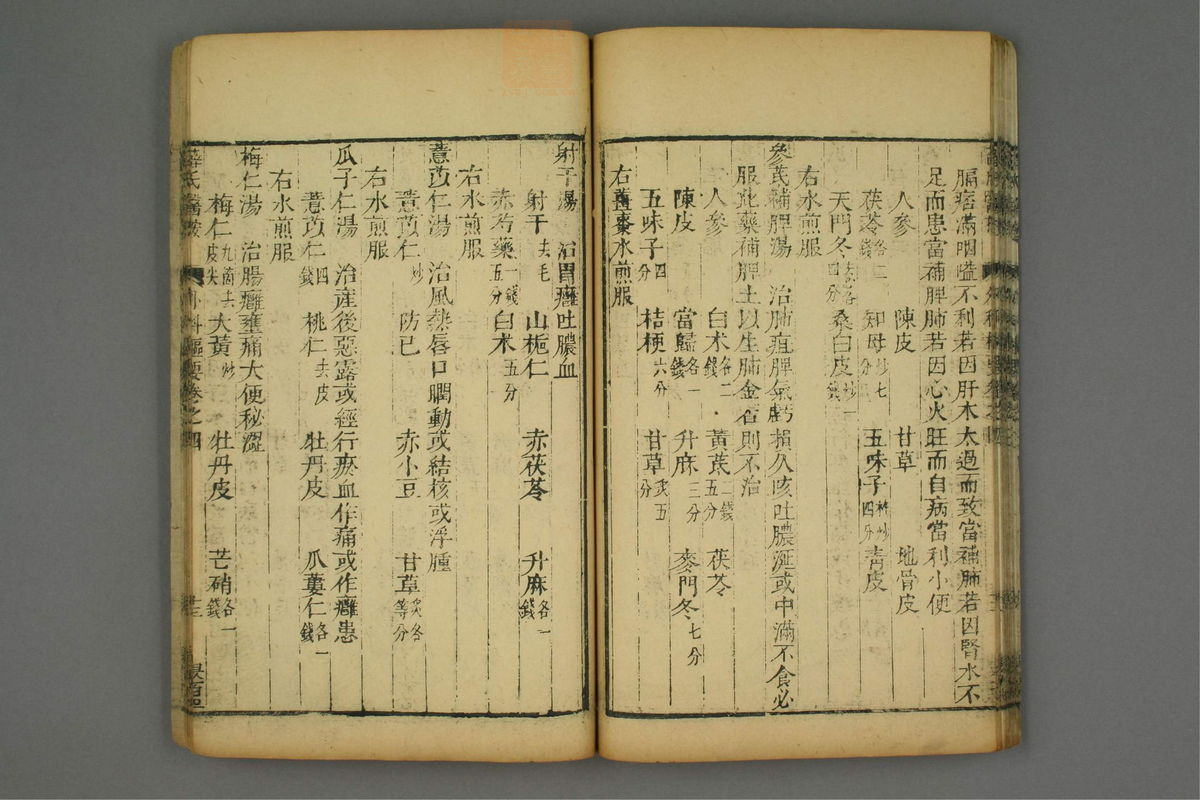 膈痞滿咽嗌不利若因肝木太過而致當補肺若因腎水不
足而患當補脾肺若因心火旺而自病當利小便
人參 陳皮 甘草 地骨皮
茯苓各二錢 知母炒七分 五味子杵炒四分 青皮
天門冬去心各四分 桑白皮炒一錢
右水煎服
參芪補脾湯 治肺疽脾氣虧損久咳吐膿涎或中滿不食必
服此藥補脾土以生肺金否則不治
人參 白朮各二錢 黃芪二錢五分 茯苓
陳皮 當歸各一錢 升麻三分 麥門冬七分
五味子四分 桔梗六分 甘草炙五分
右薑棗水煎服
射干湯 治胃癰吐膿血
射干去毛 山梔仁 赤茯苓 升麻各一錢
赤芍藥一錢五分 白朮五分
右水煎服
薏苡仁湯 治風熱唇口瞤動或結核或浮腫
薏苡仁炒 防已 赤小豆 甘草炙各等分
右水煎服
瓜子仁湯 治產後惡露或經行瘀血作痛或作癰患
薏苡仁四錢 桃仁去皮 牡丹皮 瓜蔞仁各一錢
右水煎服
梅仁湯 治腸癰壅痛大便秘澀
梅仁九箇去皮尖 大黃炒 牡丹皮 芒硝各一錢
薛氏醫按 外科樞要卷之四 十三